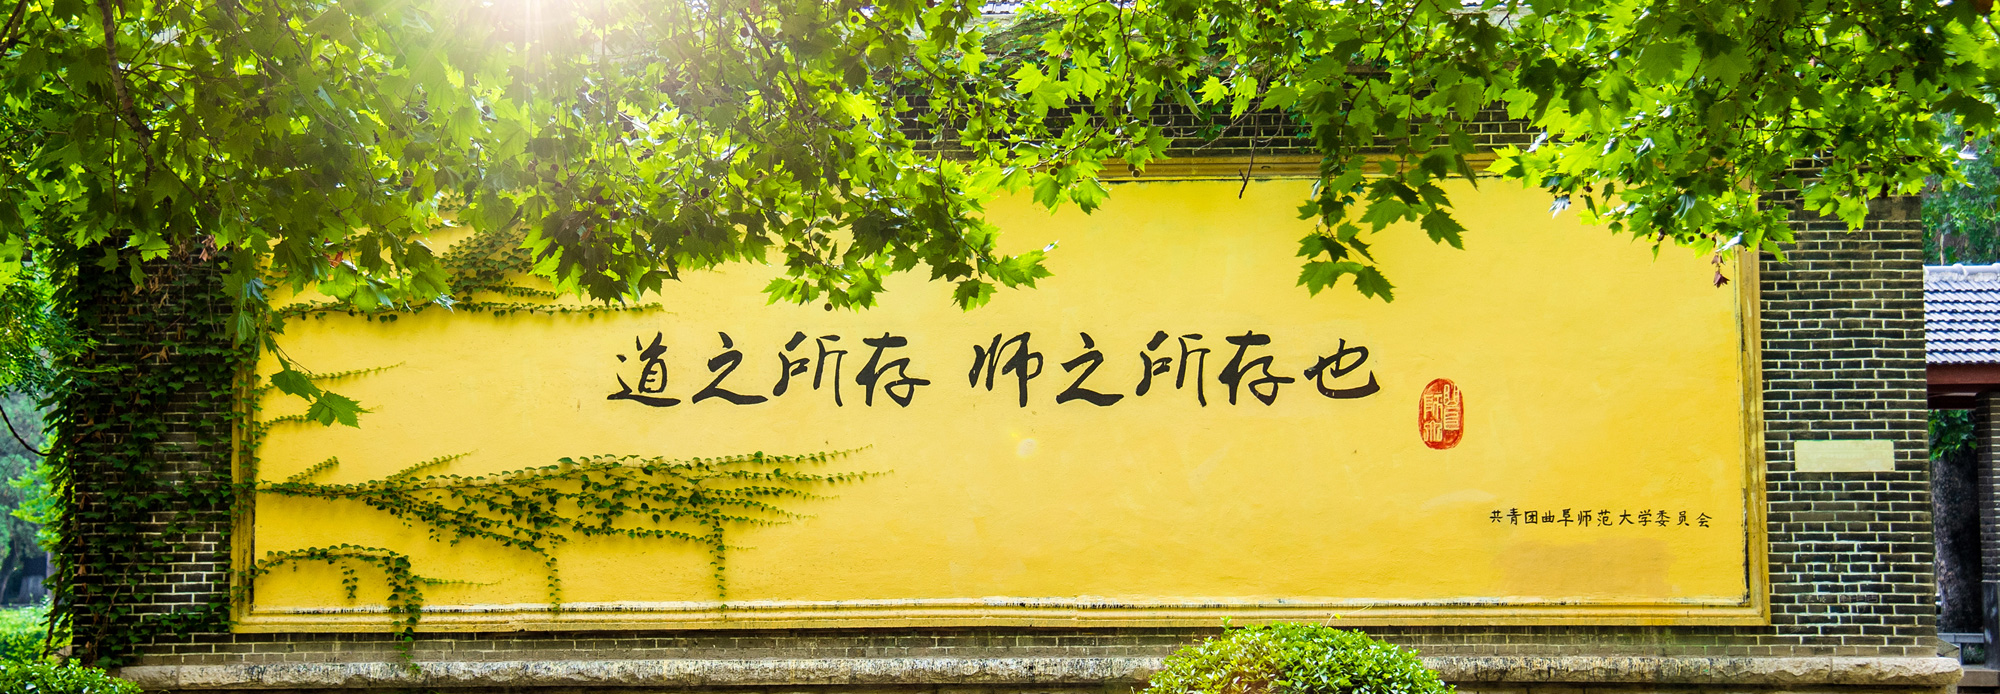 道之所存 师之所存也
共青团曲阜师范大学委员会